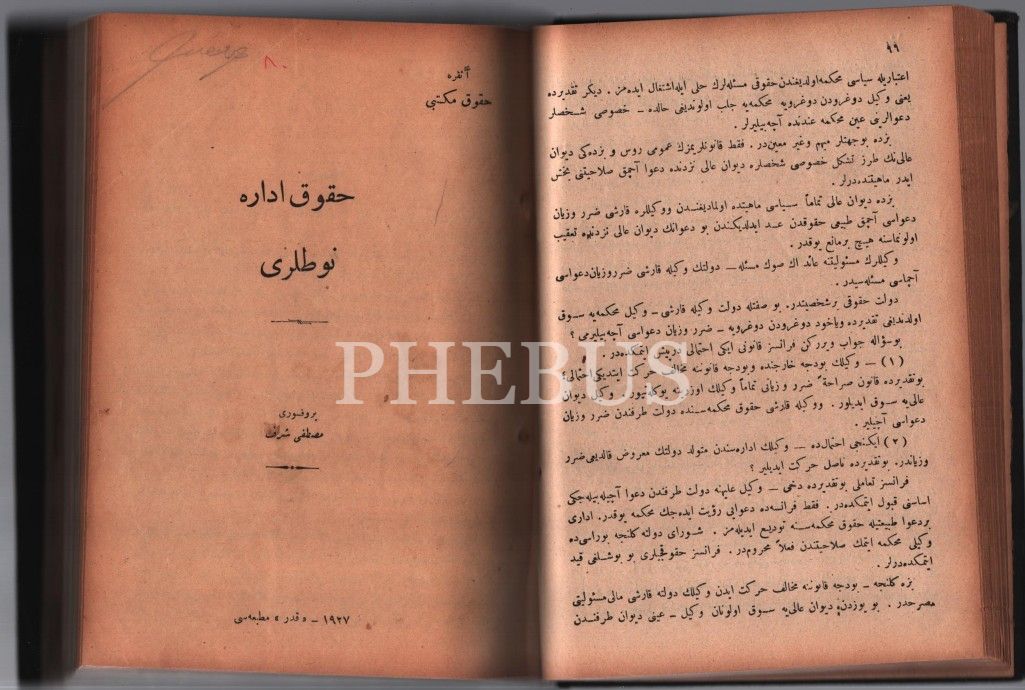 آنقره
حقوق مكتبی
حقوق اداره
نوطلری
پروفسوری
مصطفی شرف
١٩٢٧ - « قدر » مطبعه‌سی
PHEBUS
٩٩
اعتباریله سیاسی محكمه اولدیغندن حقوقی مسئله‌لرك حلی ایله اشتغال ایده‌مز . دیگر تقدیرده
یعنی وكیل دوغرودن دوغرویه محكمه‌یه جلب اولوندیغی حالده – خصوصی شخصلر
دعوالرینی عین محكمه عندنده آچه‌بیلیرلر .
بزده بوجهتلر مبهم وغیر معیندر . فقط قانونلریمزك عمومی روس و بزده‌كی دیوان
عالی‌نك طرز تشكل خصوصی شخصلره دیوان عالی نزدنده دعوا آچمق صلاحیتنی بخش
ایدر ماهیتده‌درلر .
بزده دیوان عالی تماماً سیاسی ماهیتده اولمادیغندن ووكیللره قارشی ضرر وزیان
دعواسی آچمق طبیعی حقوقدن عد ایدلدیكندن بو دعوانك دیوان عالی نزدنده تعقیب
اولونماسنه هیچ برمانع یوقدر .
وكیللرك مسئولیتنه عائد اك صوك مسئله – دولتك وكیله قارشی ضرروزیان دعواسی
آچماسی مسئله‌سیدر .
دولت حقوقی برشخصیتدر . بو صفتله دولت وكیله قارشی – وكیل محكمه‌یه سوق
اولدندیغی تقدیرده ویاخود دوغرودن دوغرویه – ضرر وزیان دعواسی آچه‌بیلیرمی ؟
بوسؤاله جواب ویرركن فرانسز قانونی ایكی احتمالی درپیش ایتمكده‌در .
(١) – وكیلك بودجه خارجنده وبودجه قانوننه مخالف حركت ایتدیكی احتمالی ؛
بوتقدیرده قانون صراحةً ضرر وزیانی تماماً وكیلك اوزرینه یوكله‌تیور . وكیل دیوان
عالی‌یه سوق ایدیلور . ووكیله قارشی حقوق محكمه‌سنده دولت طرفندن ضرر وزیان
دعواسی آچیلیر .
(٢) ایكنجی احتمال‌ده – وكیلك اداره‌سندن متولد دولتك معروض قالدیغی ضرر
وزیاندر . بوتقدیرده ناصل حركت ایدیلیر ؟
فرانسز تعاملی بوتقدیرده دخی – وكیل علیهنه دولت طرفندن دعوا آچیله‌بیله‌جكی
اساسنی قبول ایتمكده‌در . فقط فرانسه‌ده دعوایی رؤیت ایده‌جك محكمه یوقدر . اداری
بردعوا طبیعتیله حقوق محكمه‌سنه تودیع ایدیله‌مز . شورای دولته كلنجه بوراسی‌ده
وكیلی محكمه ایتمك صلاحیتندن فعلاً محرومدر . فرانسز حقوقجیلری بو بوشلغی قید
ایتمكده‌درلر .
بزه كلنجه – بودجه قانوننه مخالف حركت ایدن وكیلك دولته قارشی مالی مسئولیتی
مصرحدر . بو یوزدن دیوان عالی‌یه سوق اولونان وكیل – عینی دیوان طرفندن